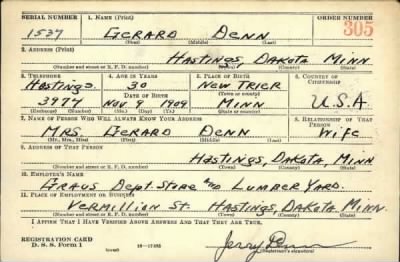 SERIAL NUMBER 1. NAME (Print) ORDER NUMBER
1537 GERARD DENN 305
(First) (Middle) (Last)
2. ADDRESS (Print)
HASTINGS, DAKOTA MINN
(Number and street or R. F. D. number) (Town) (County) (State)
3. TELEPHONE 4. AGE IN YEARS 5. PLACE OF BIRTH 6. COUNTRY OF CITIZENSHIP
HASTINGS 30 NEW TRIER
DATE OF BIRTH (Town or county)
3977 NOV 9 1909 MINN U.S.A
(Exchange) (No.) (Mo.) (Day) (Yr.) (State or country)
7. NAME OF PERSON WHO WILL ALWAYS KNOW YOUR ADDRESS 8. RELATIONSHIP OF THAT PERSON
MRS. GERARD DENN WIFE
(Mr., Mrs., Miss) (First) (Middle) (Last)
9. ADDRESS OF THAT PERSON
HASTINGS, DAKOTA, MINN
(Number and street or R. F. D. number) (Town) (County) (State)
10. EMPLOYER'S NAME
GRAUS DEPT. STORE AND LUMBER YARD.
11. PLACE OF EMPLOYMENT OR BUSINESS
VERMILLION ST. HASTINGS, DAKOTA MINN.
(Number and street or R. F. D. number) (Town) (County) (State)
I AFFIRM THAT I HAVE VERIFIED ABOVE ANSWERS AND THAT THEY ARE TRUE.
REGISTRATION CARD
D. S. S. Form 1 Jerry Denn
(Registrant's signature)